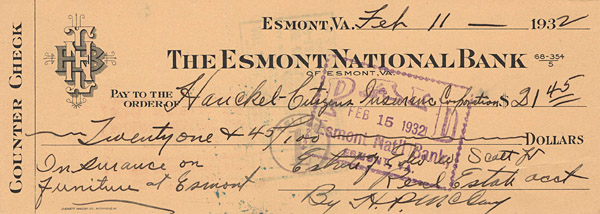 COUNTER CHECK
ESMONT, VA. Feb 11 — 1932
THE ESMONT NATIONAL BANK 68-354
OF ESMONT, VA. 5
PAY TO THE
ORDER OF Hanckel-Citizens Insurance Corporation $ 21 45
Twenty one & 45/100 DOLLARS
PAID
FEB 15 1932
Esmont Nat'l Bank
ESMONT, VA.
Insurance on Scott Jr
furniture at Esmont Real Estate acct
By H. P. McCloy